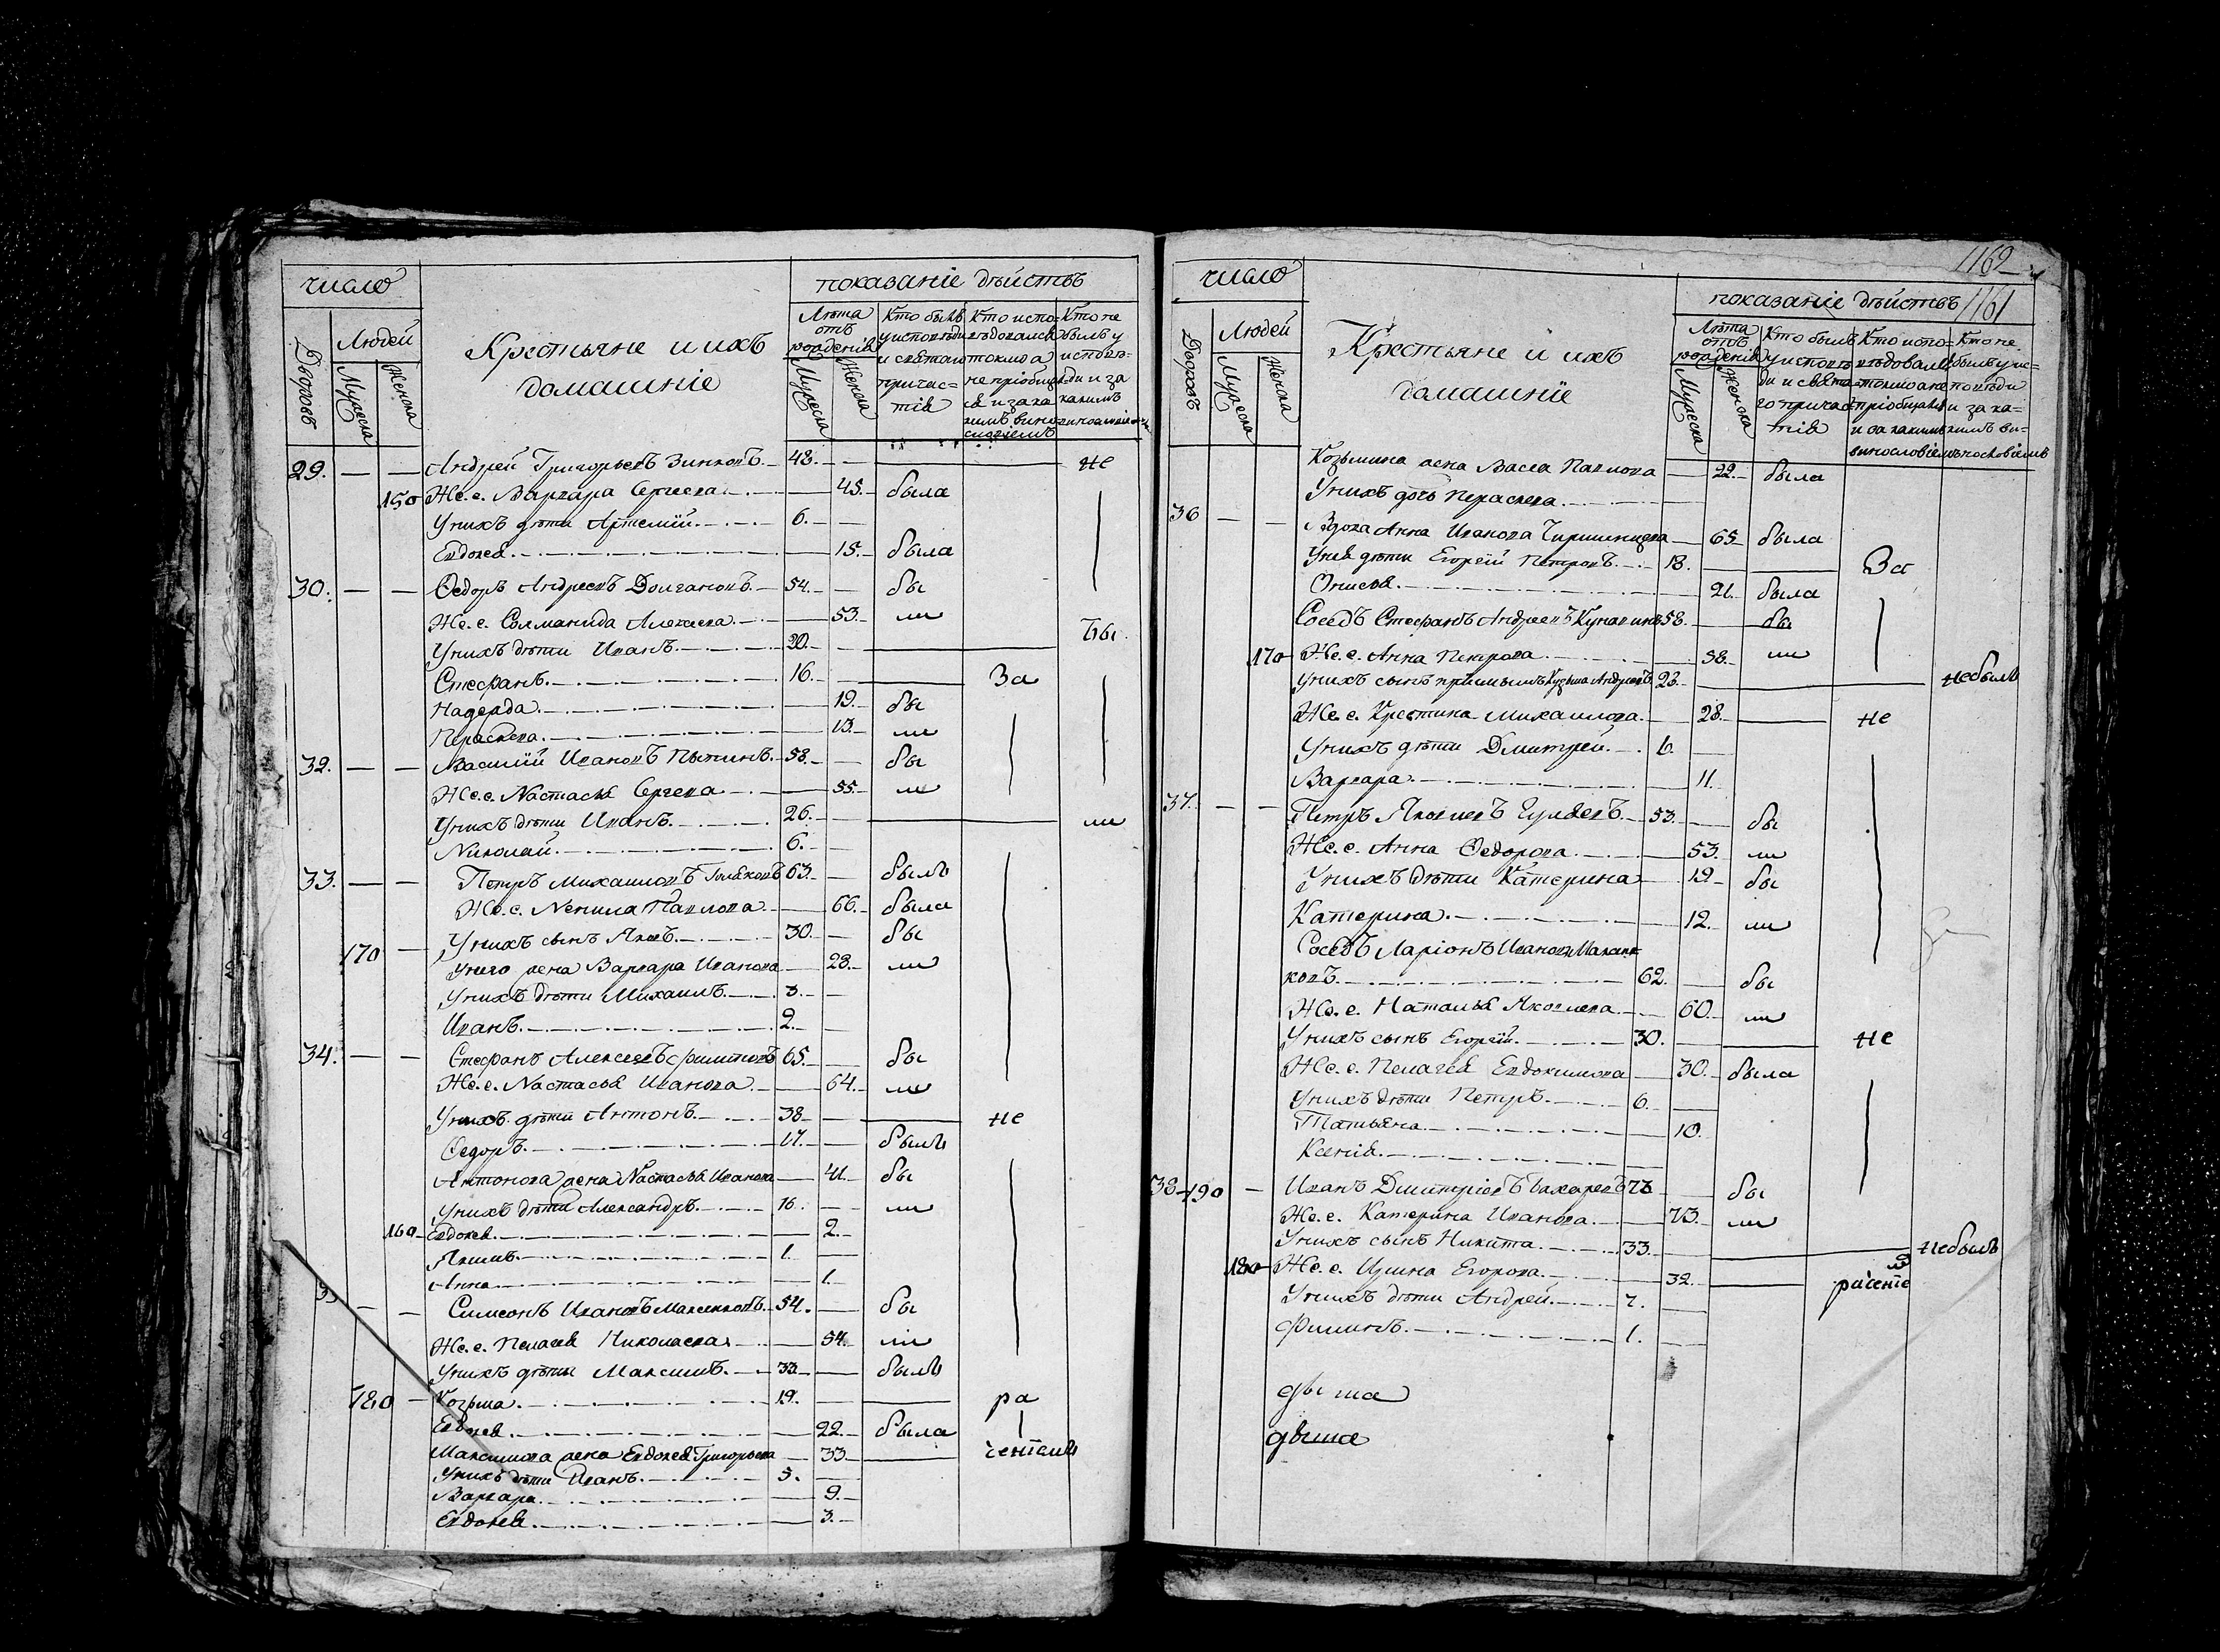 число
показаніе дѣйствъ
Дворовъ
Людей
Мужеска
Женска
Крестьяне и ихъ
домашніе
Лѣта
отъ
рожденія
Мужеска
Женска
Кто былъ
у исповѣди
и святаго
причас=
тія
Кто испо=
вѣдовался
токмо а
не пріобщал
ся и за ка
кимъ вино
словіемъ
Кто не
былъ у
исповѣ=
ди и за
какимъ
29. — — Андрей Григорьевъ Зинковъ. 48. — не
150 Же. е. Варвара Сергѣева. — 45. была
У нихъ дѣти Артемій. 6. —
Евдокея. — 15. была
30. — — Ѳедоръ Андреевъ Долгановъ. 54. — бы
Же. е. Соломанида Алексѣева. — 53. ли
У нихъ дѣти Иванъ. 20. — бы
Стефанъ. 16. — За
Надежда. — 19. бы
Параскева. — 13. ли
32. — — Василій Ивановъ Пыпинъ. 58. — бы
Же. е. Настасья Сергѣева — 55. ли
У нихъ дѣти Иванъ. 26. — ли
Николай. 6. —
33. — — Петръ Михаиловъ 63. — былъ
Же. е. Ненила Павлова. — 66. была
170 — У нихъ сынъ Яковъ. 30. — бы
У него жена Варвара Иванова — 28. ли
У нихъ дѣти Михаилъ. 3. —
Иванъ. 2. —
34. — — Стефанъ Алексеевъ Филитовъ 65. — бы
Же. е. Настасья Иванова. — 64. ли
У нихъ дѣти Антонъ. 38 — не
Ѳедоръ. 17. — былъ
Антонова жена Настасья Иванова — 41. бы
У нихъ дѣти Александръ. 16. — ли
160 Евдокея. — 2.
Якимъ. 1. —
Анна — 1.
35 — — Симеонъ Ивановъ Максенковъ. 54. — бы
Же. е. Пелагея Николаева — 54. ли
У нихъ дѣти Максимъ. 33. — былъ
180 — Козьма. 19. — ра
Евдокея. — 22. была
Максимова жена Евдокея Григорьева — 33 чентемъ
У нихъ дѣти Иванъ. 5. —
Варвара. — 9.
Евдокея. — 3.
1162
1161
число
показаніе дѣйствъ
Дворовъ
Людей
Мужеска
Женска
Крестьяне и ихъ
домашніе
Лѣта
отъ
рожденія
Мужеска
Женска
Кто былъ
у исповѣ
ди и свята=
го причас
тія
Кто испо=
вѣдовался
токмо а не
пріобщался
и за какимъ
винословіемъ
Кто не
былъ у ис=
повѣди
и за ка=
кимъ ви=
нословіемъ
Козьмина жена Васса Павлова — 22. была
У нихъ дочь Параскева.
36 — — Вдова Анна Иванова — 65 была
У нея дѣти Егорей Петровъ. 18. — За
Онисья. — 21. была
Соседъ Стефанъ Андреевъ Кунавинъ 58. — бы
170 Же. е. Анна Петрова. — 58. ли
У нихъ сынъ пріимышъ Кузьма Андреевъ 23. — небылъ
Же. е. Крестина Михаилова. — 28. не
У нихъ дѣти Дмитрей. 6. —
Варвара. — 11.
37. — — Петръ Яковлевъ Гуляевъ. 53. — бы
Же. е. Анна Ѳедорова. — 53. ли
У нихъ дѣти Катерина — 19 бы
Катерина. — 12. ли
Соседъ Ларіонъ Ивановъ
ковъ. 62. — бы
Же. е. Наталья Яковлева. — 60. ли
У нихъ сынъ Егорей. 30. — не
Же. е. Пелагея Евдокимова — 30. была
У нихъ дѣти Петръ. 6. —
Татьяна. — 10.
Ксенія. —
38 190 — Иванъ Дмитріевъ Бахаревъ 73 — бы
Же. е. Катерина Иванова. — 73. ли
У нихъ сынъ Никита. 33. — небылъ
180 Же. е. Ирина Егорова. — 32. раченіе
У нихъ дѣти Андрей. 7. —
Филипъ. 1. —